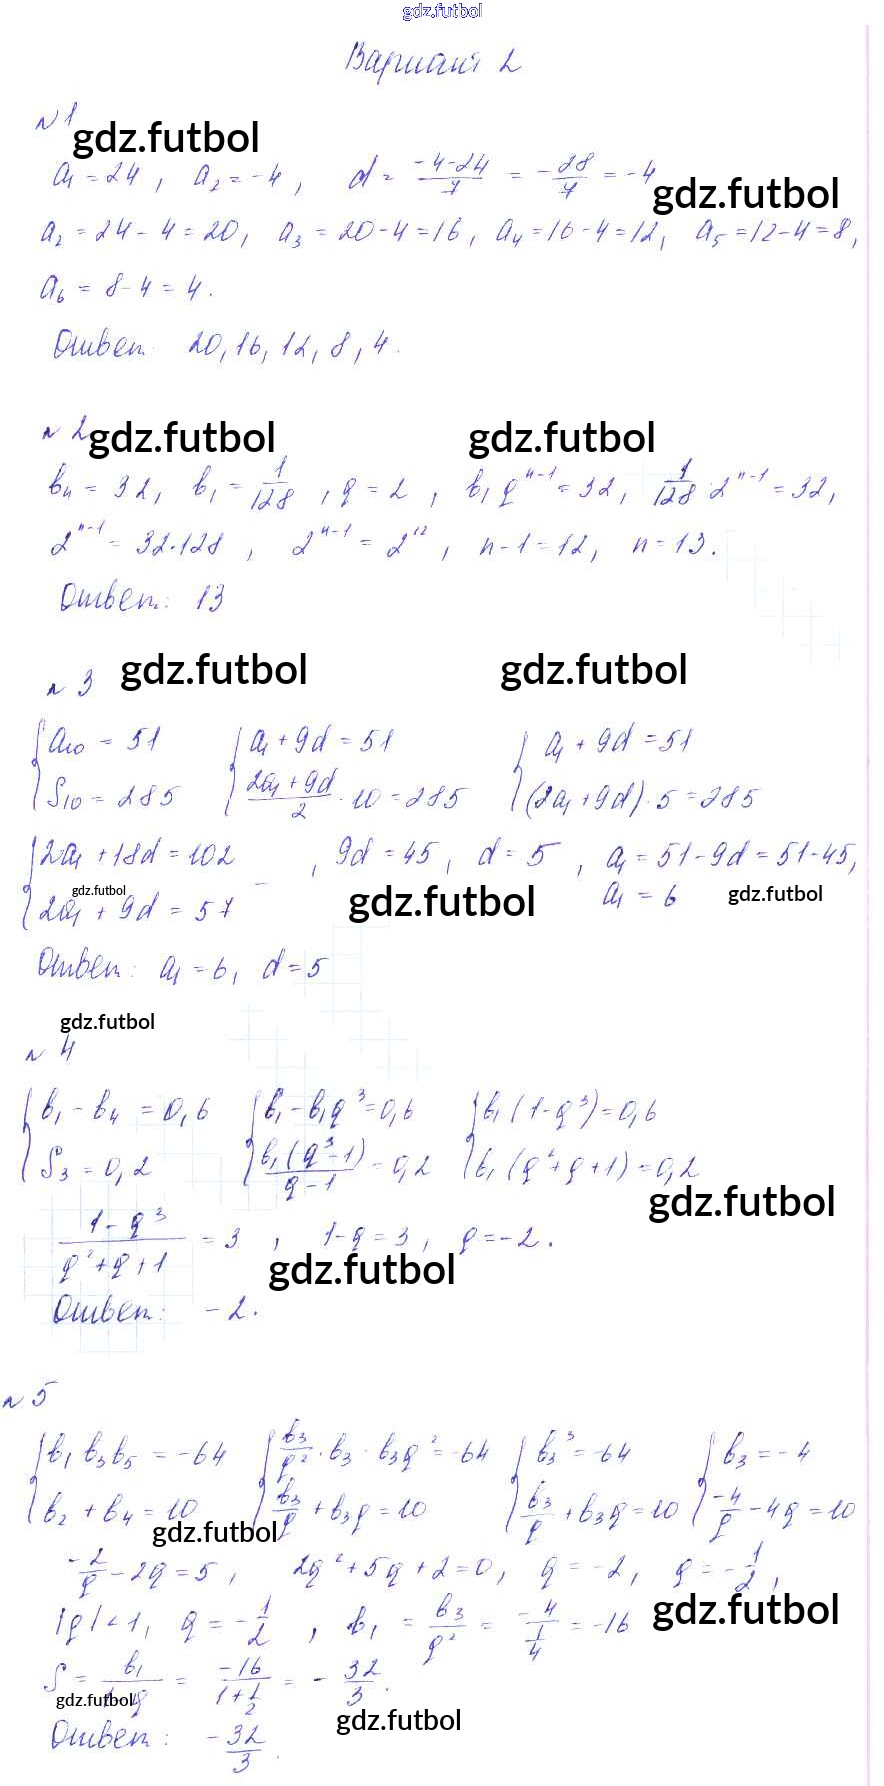 gdz.futbol
Вариант 2
№1
gdz.futbol
a₁ = 24, a₂ = -4, d = (-4-24)/7 = -28/7 = -4
gdz.futbol
a₂ = 24 - 4 = 20, a₃ = 20 - 4 = 16, a₄ = 16 - 4 = 12, a₅ = 12 - 4 = 8,
a₆ = 8 - 4 = 4.
Ответ: 20, 16, 12, 8, 4.
№ 2
gdz.futbol gdz.futbol
bₙ = 32, b₁ = 1/128, q = 2, b₁qⁿ⁻¹ = 32, 1/128 · 2ⁿ⁻¹ = 32,
2ⁿ⁻¹ = 32·128, 2ⁿ⁻¹ = 2¹², n - 1 = 12, n = 13.
Ответ: 13
№ 3
gdz.futbol gdz.futbol
{a₁₀ = 51 {a₁ + 9d = 51 {a₁ + 9d = 51
S₁₀ = 285 (2a₁ + 9d)/2 · 10 = 285 (2a₁ + 9d)·5 = 285
{2a₁ + 18d = 102 -, 9d = 45, d = 5, a₁ = 51 - 9d = 51 - 45,
gdz.futbol gdz.futbol gdz.futbol
2a₁ + 9d = 57 a₁ = 6
Ответ: a₁ = 6, d = 5
gdz.futbol
№ 4
{b₁ - b₄ = 0,6 {b₁ - b₁q³ = 0,6 {b₁(1 - q³) = 0,6
S₃ = 0,2 b₁(q³ - 1)/(q - 1) = 0,2 b₁(q² + q + 1) = 0,2
gdz.futbol
(1 - q³)/(q² + q + 1) = 3, 1 - q = 3, q = -2.
gdz.futbol
Ответ: -2.
№ 5
{b₁b₃b₅ = -64 {b₃/q² · b₃ · b₃q² = -64 {b₃³ = -64 {b₃ = -4
b₂ + b₄ = 10 b₃/q + b₃q = 10 b₃/q + b₃q = 10 -4/q - 4q = 10
gdz.futbol
-2/q - 2q = 5, 2q² + 5q + 2 = 0, q = -2, q = -1/2,
|q| < 1, q = -1/2, b₁ = b₃/q² = -4/(1/4) = -16
gdz.futbol
S = b₁/(1 - q) = -16/(1 + 1/2) = -32/3.
gdz.futbol
gdz.futbol
Ответ: -32/3.